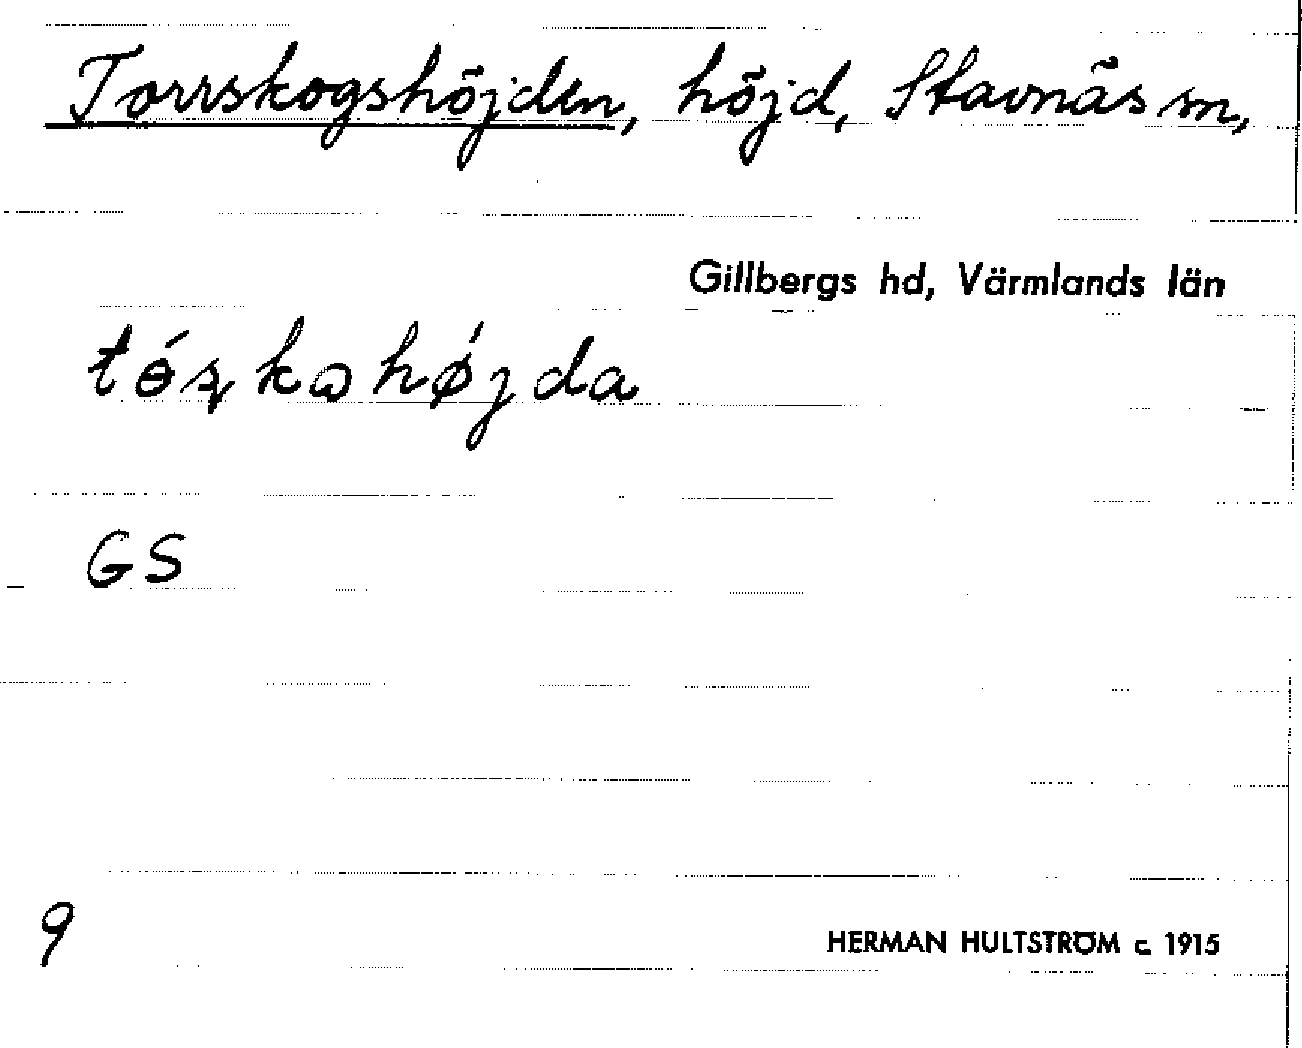 Torrskogshöjden, höjd, Stavnäs sn,
Gillbergs hd, Värmlands län
GS
9
HERMAN HULTSTRÖM c. 1915